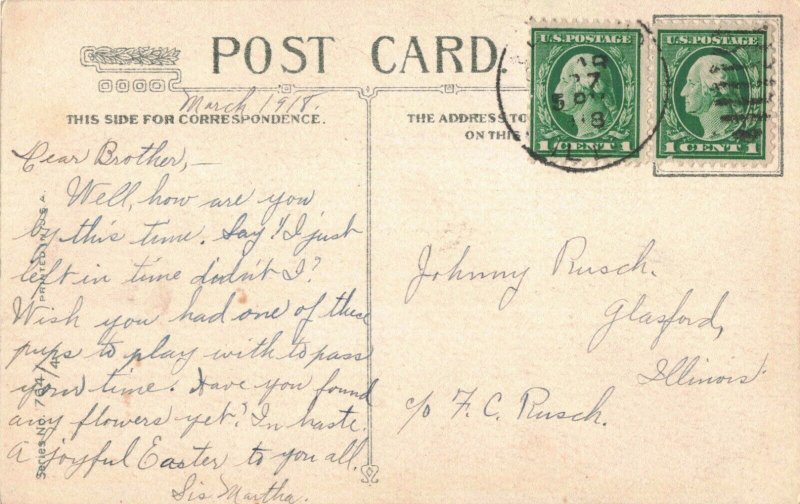 POST CARD.
March 1918.
THIS SIDE FOR CORRESPONDENCE.
THE ADDRESS TO
ON THIS
U.S. POSTAGE
1 CENT 1
U.S. POSTAGE
1 CENT 1
19
27
5 PM
8
ILL
Dear Brother,—
Well, how are you
by this time. Say! I just
left in time didn't I?
Wish you had one of these
pups to play with to pass
your time. Have you found
any flowers yet? In haste.
A joyful Easter to you all.
Sis Martha.
Johnny Rusch.
Glasford,
Illinois.
c/o F. C. Rusch.
Series No. 764/4
PRINTED IN U.S.A.